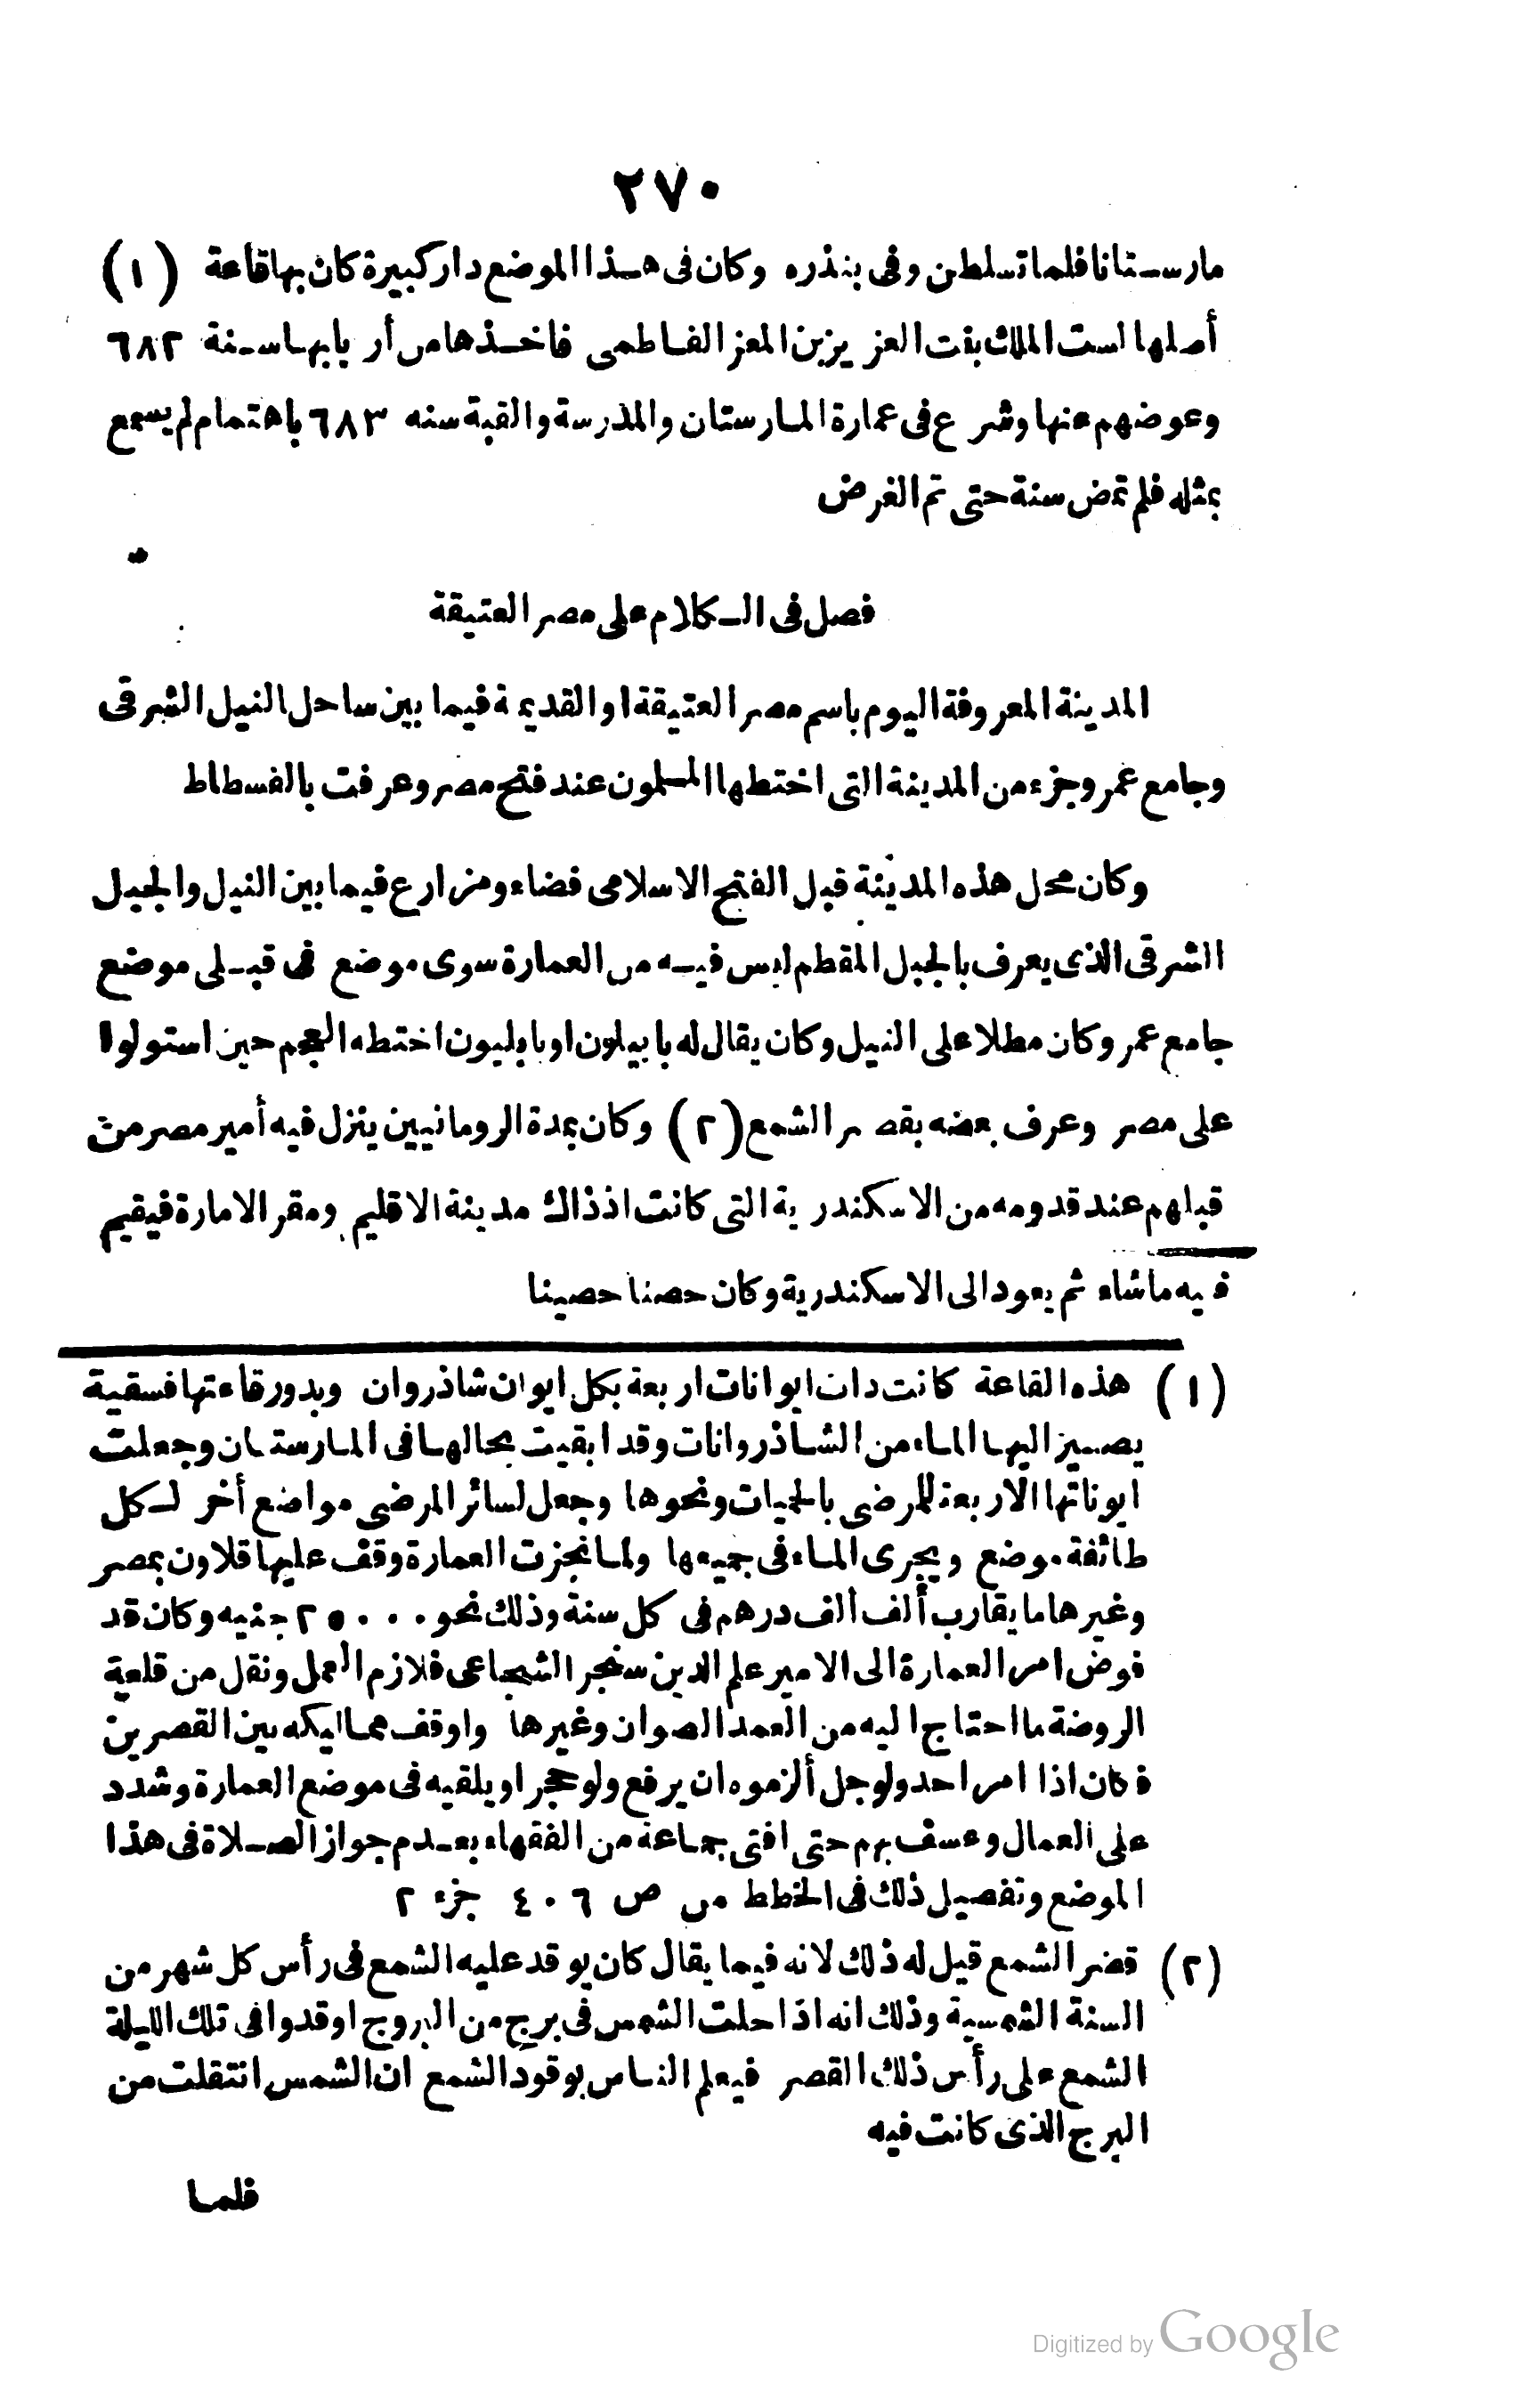 ٢٧٠
مارستانا فلما تسلطن وفى بنذره وكان فى هذا الموضع دار كبيرة كان بها قاعة (١)
أصلها لست الملك بنت العزيز بن المعز الفاطمى فاخذها من أربابها سنة ٦٨٢
وعوضهم عنها وشرع فى عمارة المارستان والمدرسة والقبة سنه ٦٨٣ باهتمام لم يسمع
بمثله فلم تمض سنة حتى تم الغرض
فصل فى الكلام على مصر العتيقة
المدينة المعروفة اليوم باسم مصر العتيقة او القديمة فيما بين ساحل النيل الشرقى
وجامع عمر وجزء من المدينة التى اختطها المسلمون عند فتح مصر وعرفت بالفسطاط
وكان محل هذه المدينة قبل الفتح الاسلامى فضاء ومزارع فيما بين النيل والجبل
الشرقى الذى يعرف بالجبل المقطم ليس فيه من العمارة سوى موضع فى قبلى موضع
جامع عمر وكان مطلا على النيل وكان يقال له بابيلون او بابليون اختطه العجم حين استولوا
على مصر وعرف بعضه بقصر الشمع (٢) وكان بمدة الرومانيين ينزل فيه أمير مصر من
قبلهم عند قدومه من الاسكندرية التى كانت اذذاك مدينة الاقليم ومقر الامارة فيقيم
فيه ماشاء ثم يعود الى الاسكندرية وكان حصنا حصينا
(١) هذه القاعة كانت ذات ايوانات اربعة بكل ايوان شاذروان وبدور قاعتها فسقية
يصير اليها الماء من الشاذروانات وقد ابقيت بحالها فى المارستان وجعلت
ايوناتها الاربعة للمرضى بالحميات ونحوها وجعل لسائر المرضى مواضع أخر لكل
طائفة موضع ويجرى الماء فى جميعها ولما نجزت العمارة وقف عليها قلاون بمصر
وغيرها ما يقارب ألف ألف درهم فى كل سنة وذلك نحو ٢٥٠٠٠ جنيه وكان قد
فوض امر العمارة الى الامير علم الدين سنجر الشجاعى فلازم العمل ونقل من قلعة
الروضة ما احتاج اليه من العمد الصوان وغيرها واوقف مماليكه بين القصرين
فكان اذا امر احد ولو جل ألزموه ان يرفع ولو حجر او يلقيه فى موضع العمارة وشدد
على العمال وعسف بهم حتى افتى جماعة من الفقهاء بعدم جواز الصلاة فى هذا
الموضع وتفصيل ذلك فى الخطط من ص ٤٠٦ جزء ٢
(٢) قصر الشمع قيل له ذلك لانه فيما يقال كان يوقد عليه الشمع فى رأس كل شهر من
السنة الشمسية وذلك انه اذا حلت الشمس فى برج من البروج اوقدوا فى تلك الليلة
الشمع على رأس ذلك القصر فيعلم الناس بوقود الشمع ان الشمس انتقلت من
البرج الذى كانت فيه
فلما
Digitized by Google